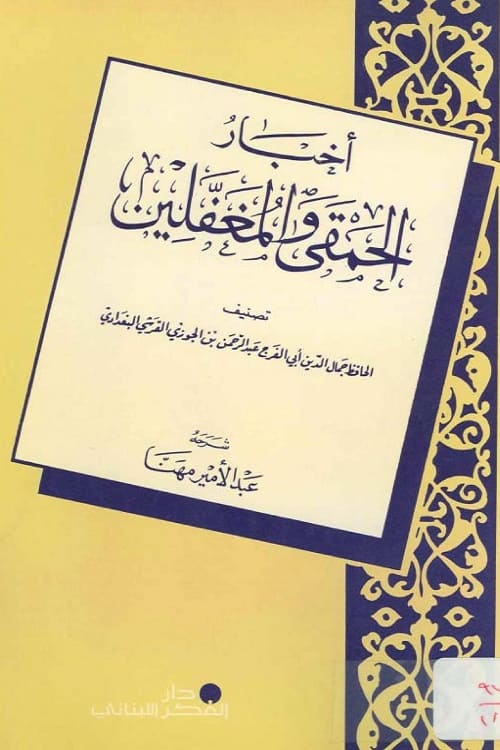 أخبَارُ
الحَمْقَى وَالمُغَفَّلِين
تصنيف
الحافظ جمال الدين أبي الفرج عبد الرحمن بن الجوزي القرشي البغدادي
شرحه
عبد الأمير مهنّا
دار
الفكر اللبناني